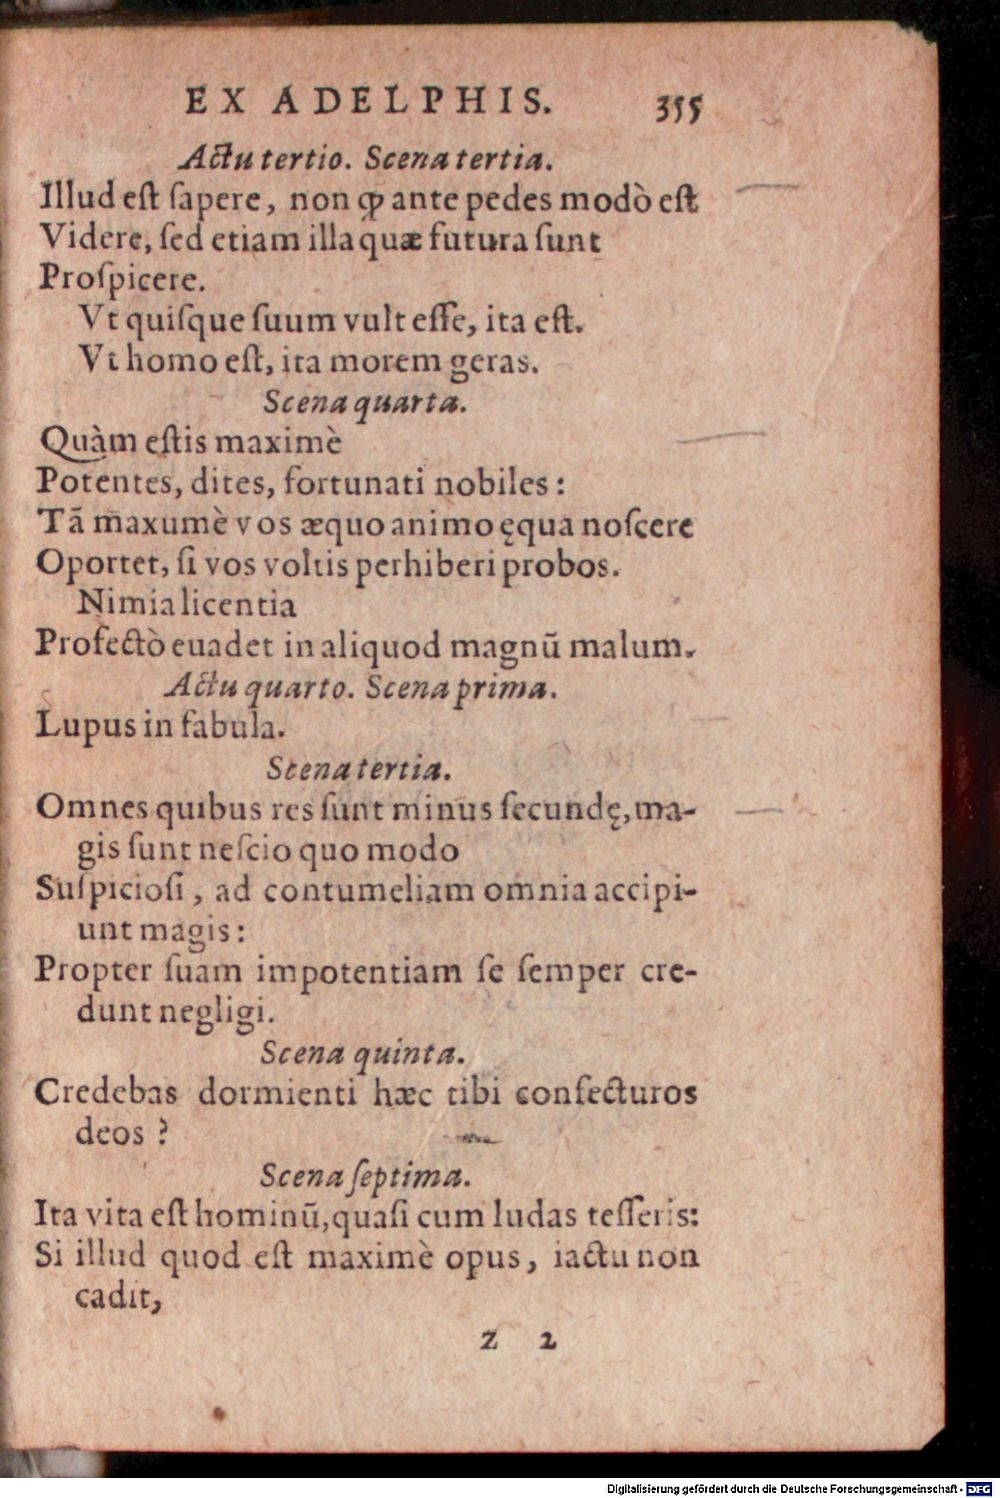 EX ADELPHIS. 355
Actu tertio. Scena tertia.
Illud eſt ſapere, non ꝙ ante pedes modò eſt
Videre, ſed etiam illa quæ futura ſunt
Proſpicere.
Vt quiſque ſuum vult eſſe, ita eſt.
Vt homo eſt, ita morem geras.
Scena quarta.
Quàm eſtis maximè
Potentes, dites, fortunati nobiles:
Tā maxumè vos æquo animo ęqua noſcere
Oportet, ſi vos voltis perhiberi probos.
Nimia licentia
Profectò euadet in aliquod magnū malum.
Actu quarto. Scena prima.
Lupus in fabula.
Scena tertia.
Omnes quibus res ſunt minus ſecundę, ma-
gis ſunt neſcio quo modo
Suſpicioſi, ad contumeliam omnia accipi-
unt magis:
Propter ſuam impotentiam ſe ſemper cre-
dunt negligi.
Scena quinta.
Credebas dormienti hæc tibi confecturos
deos?
Scena ſeptima.
Ita vita eſt hominū, quaſi cum ludas teſſeris:
Si illud quod eſt maximè opus, iactu non
cadit,
Z 2
Digitalisierung gefördert durch die Deutsche Forschungsgemeinschaft - DFG